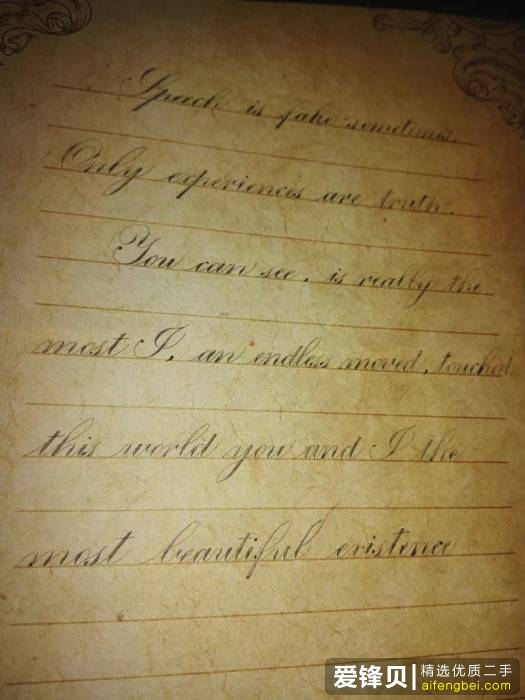 Speech is fake sometimes.
Only experiences are truth.
You can see, is really the
most I, an endless moved, touched
this world you and I the
most beautiful existence
爱锋贝
精选优质二手
aifengbei.com